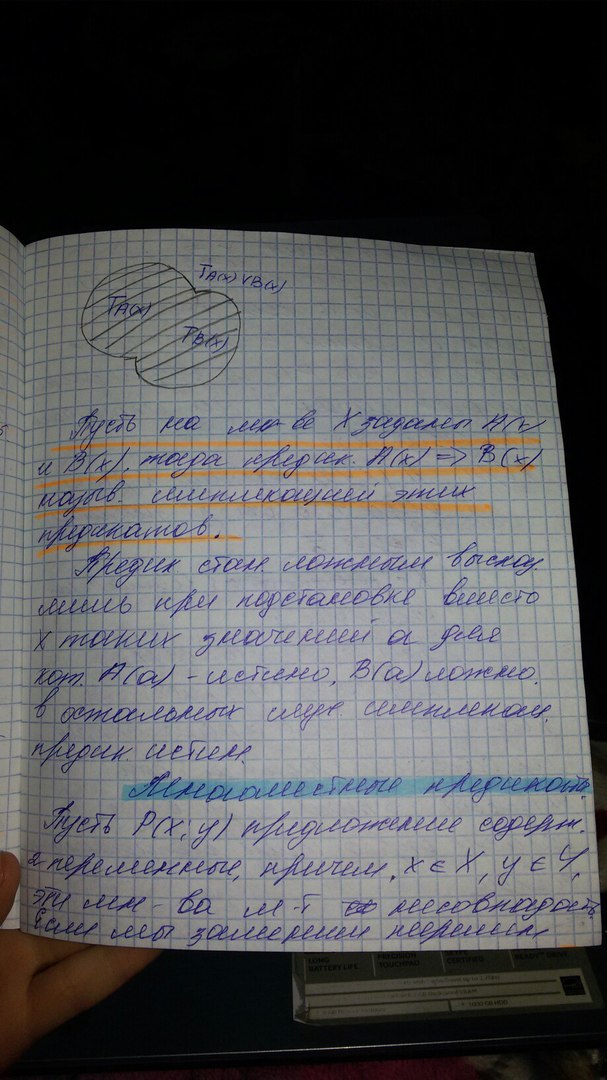 T A(x) ∨ B(x)
T A(x)
T B(x)
Пусть на мн-ве X заданы A(x
и B(x), тогда предик. A(x) => B(x)
назыв. импликацией этих
предикатов.
Предик стан. ложным выска
лишь при подстановке вместо
X таких значений a для
кот. A(a) - истино, B(a) ложно.
в остальных случ. импликац.
предик. истин.
Многоместные предикаты
Пусть P(x; y) предложение содерж.
2 переменные, причем, x ∈ X, y ∈ Y,
эти мн-ва м-т несовпадать.
Если мы заменим перемен.
LONG
BATTERY LIFE
PRECISION
TOUCHPAD
SKYPE
CERTIFIED
READY